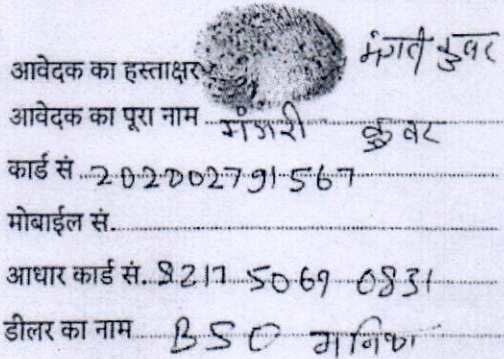 आवेदक का हस्ताक्षर मंगरी कुवर
आवेदक का पूरा नाम मंगरी कुवर
कार्ड सं 202002791567
मोबाईल सं.
आधार कार्ड सं. 9217 5069 0831
डीलर का नाम BSO मनिका